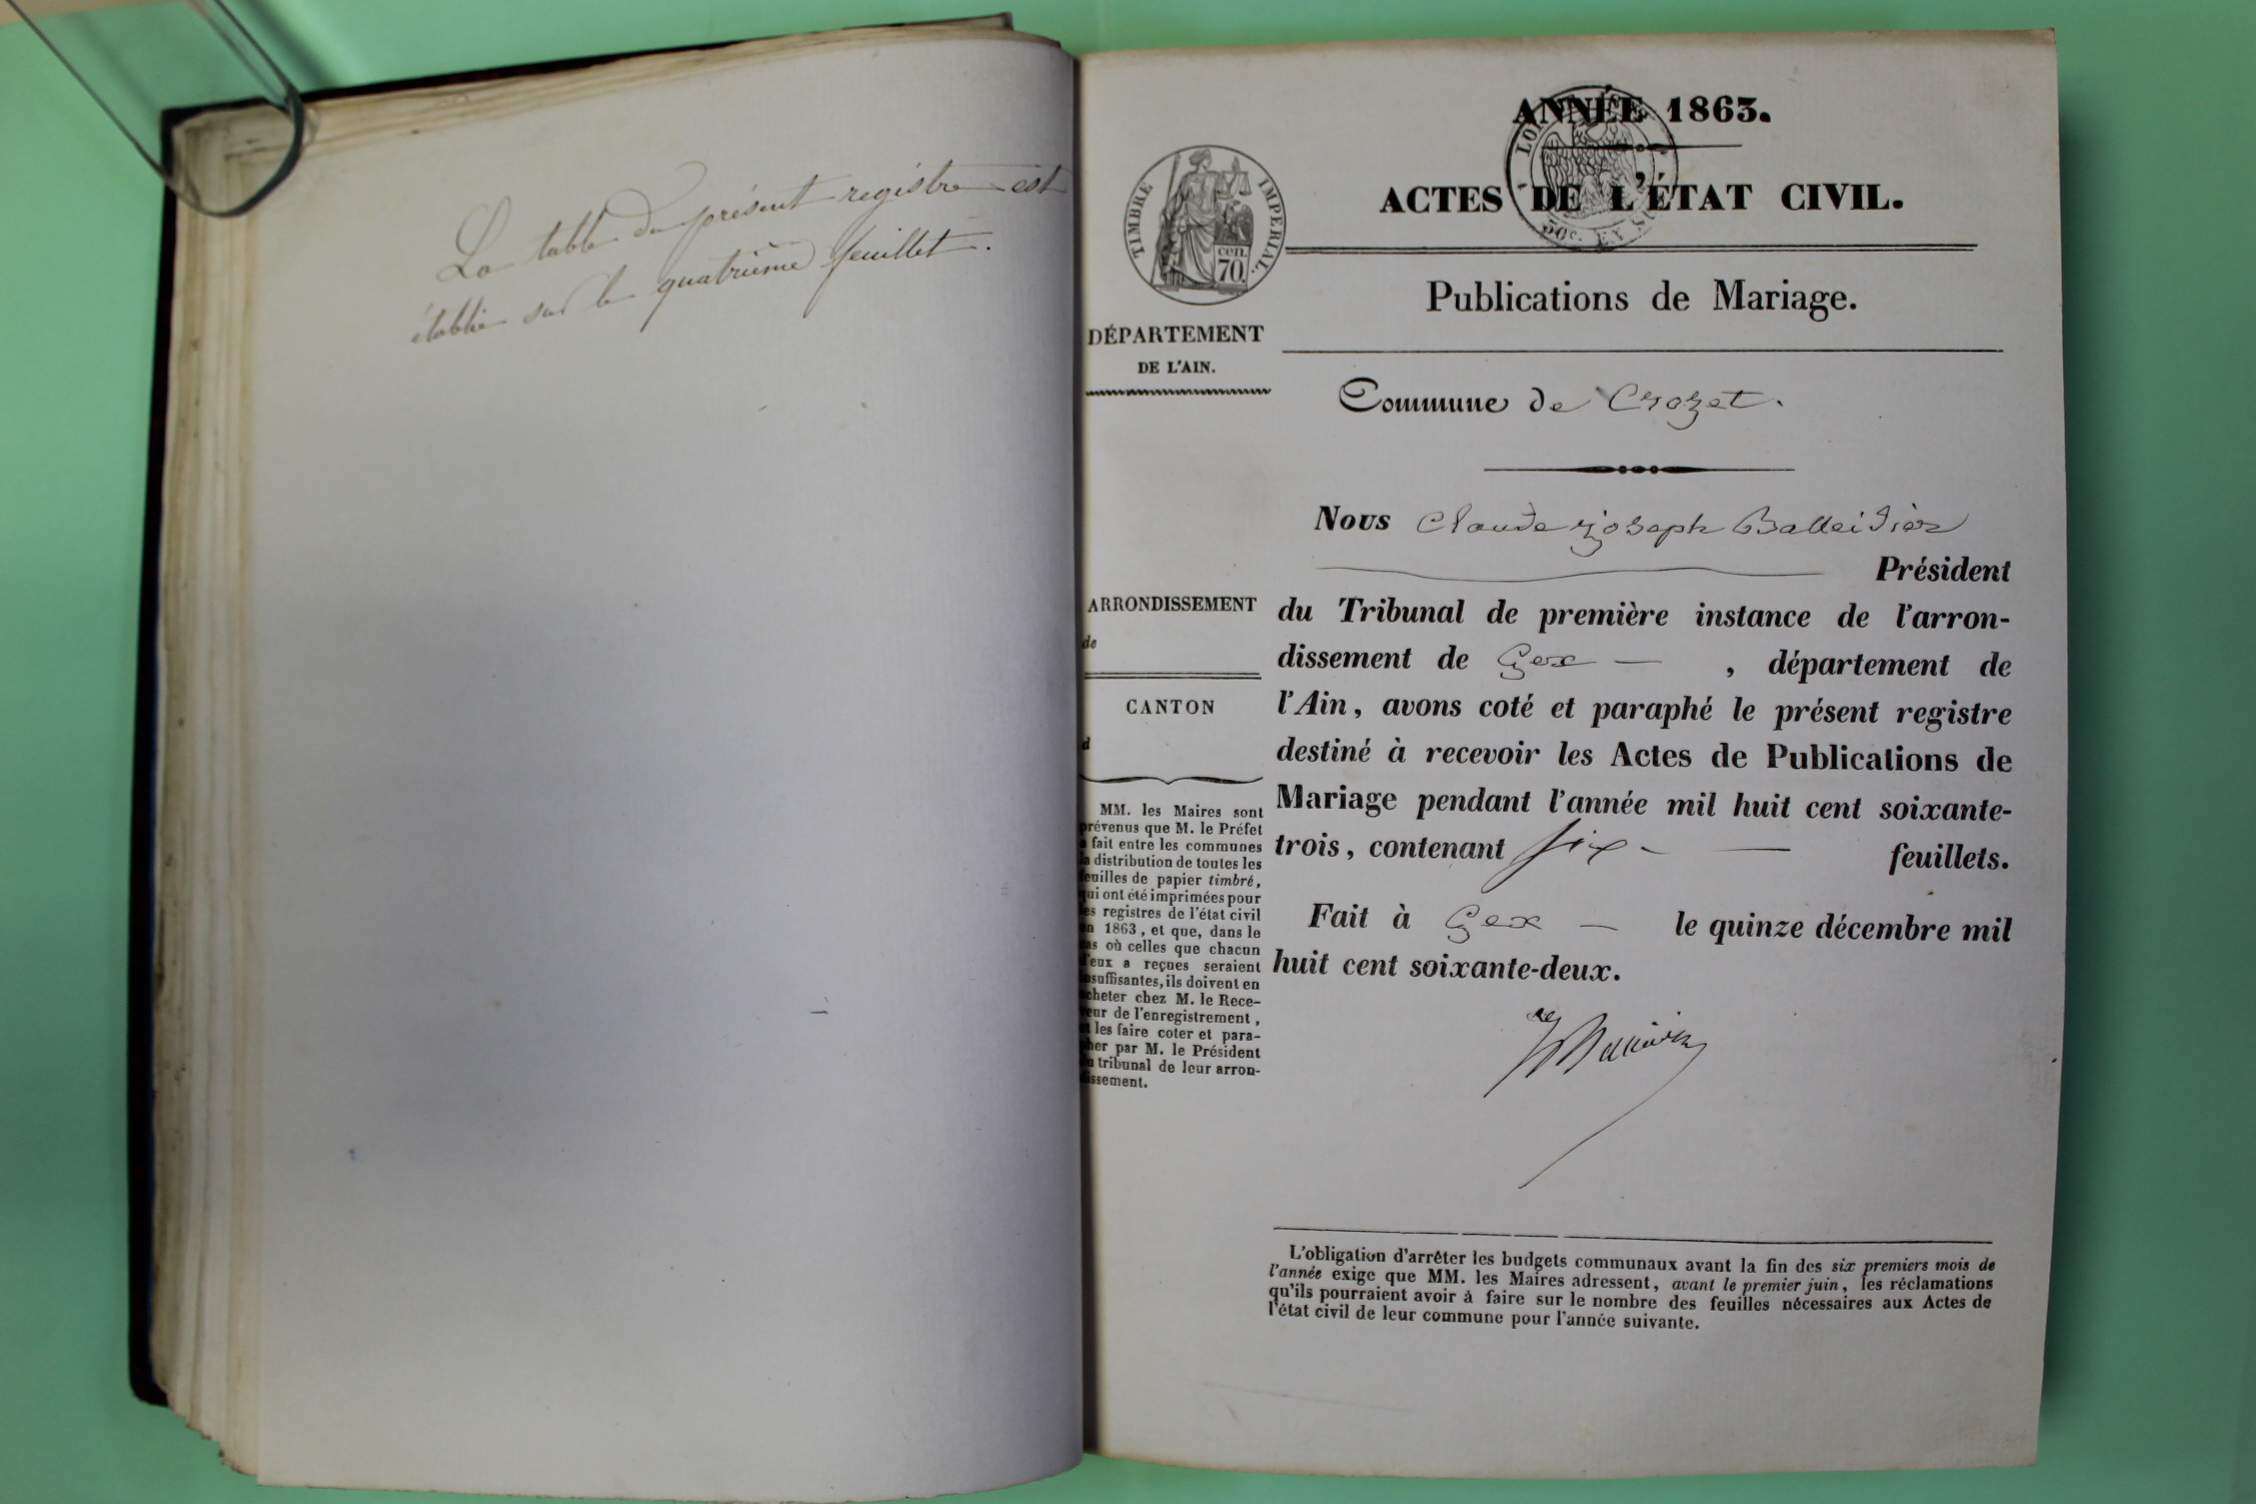 La table du présent registre est
établie sur le quatrième feuillet.
ANNÉE 1863.
ACTES DE L'ÉTAT CIVIL.
TIMBRE IMPERIAL.
cen.
70.
50c. EN SUS
Publications de Mariage.
DÉPARTEMENT
DE L'AIN.
Commune de Crozet.
Nous Claude Joseph Balleidier
Président
du Tribunal de première instance de l'arron-
dissement de Gex — , département de
l'Ain, avons coté et paraphé le présent registre
destiné à recevoir les Actes de Publications de
Mariage pendant l'année mil huit cent soixante-
trois, contenant six — feuillets.
Fait à Gex — le quinze décembre mil
huit cent soixante-deux.
ARRONDISSEMENT
de
CANTON
d
MM. les Maires sont
prévenus que M. le Préfet
a fait entre les communes
la distribution de toutes les
feuilles de papier timbré,
qui ont été imprimées pour
les registres de l'état civil
en 1863, et que, dans le
cas où celles que chacun
d'eux a reçues seraient
insuffisantes, ils doivent en
acheter chez M. le Rece-
veur de l'enregistrement,
et les faire coter et para-
pher par M. le Président
du tribunal de leur arron-
dissement.
L'obligation d'arrêter les budgets communaux avant la fin des six premiers mois de
l'année exige que MM. les Maires adressent, avant le premier juin, les réclamations
qu'ils pourraient avoir à faire sur le nombre des feuilles nécessaires aux Actes de
l'état civil de leur commune pour l'année suivante.